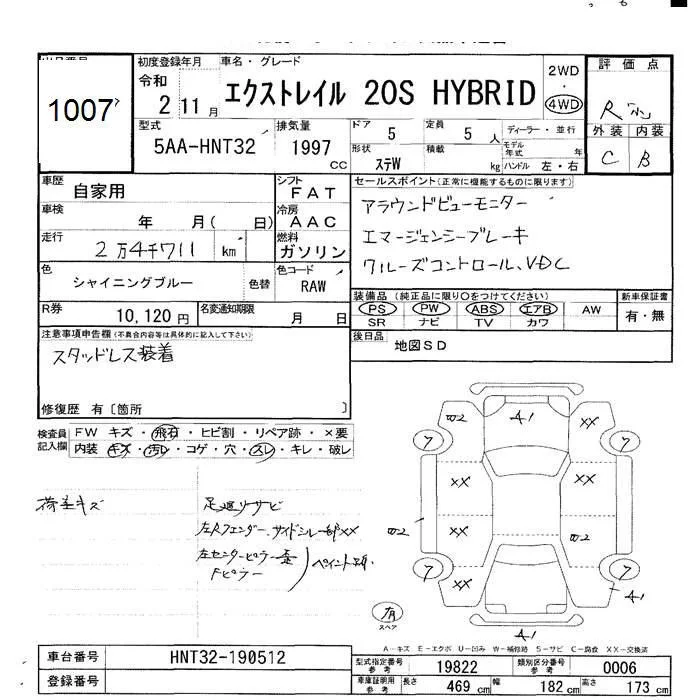 1007
初度登録年月
令和
2 11 月
車名・グレード
エクストレイル 20S HYBRID
2WD
・
4WD
評価点
R
外装 内装
C B
型式
5AA-HNT32
排気量
1997
CC
ドア
5
定員
5 人
形状
ステW
積載
kg
ディーラー・並行
モデル年式 年
ハンドル 左・右
車歴
自家用
シフト
FAT
車検
年 月( 日)
冷房
AAC
走行
2万4千711 km
燃料
ガソリン
色
シャイニングブルー
色替
色コード
RAW
R券
10,120 円
名変通知期限
月 日
セールスポイント(正常に機能するものに限ります)
アラウンドビューモニター
エマージェンシーブレーキ
クルーズコントロール、VDC
装備品(純正品に限り○をつけてください)
PS PW ABS エアB AW
SR ナビ TV カワ
新車保証書
有・無
後日品
地図SD
注意事項申告欄(不具合内容等は具体的に記入して下さい)
スタッドレス装着
修復歴 有〔箇所 〕
検査員
記入欄
FW キズ・飛石・ヒビ割・リペア跡・×要
内装 キズ・汚レ・コゲ・穴・スレ・キレ・破レ
荷室キズ
足廻リサビ
左Rフェンダー、サイドシル一部XX
左センターピラー歪
Fピラー
ペイント跡
有
スペア
W2
A1
XX
7
7
XX
XX
XX
W2
W2
7
7
XX
A1
A1
A-キズ E-エクボ U-凹み W-補修跡 S-サビ C-腐食 XX-交換済
車台番号
HNT32-190512
登録番号
型式指定番号
参考
19822
類別区分番号
参考
0006
車庫証明用
参考
長さ
469 cm
幅
182 cm
高さ
173 cm